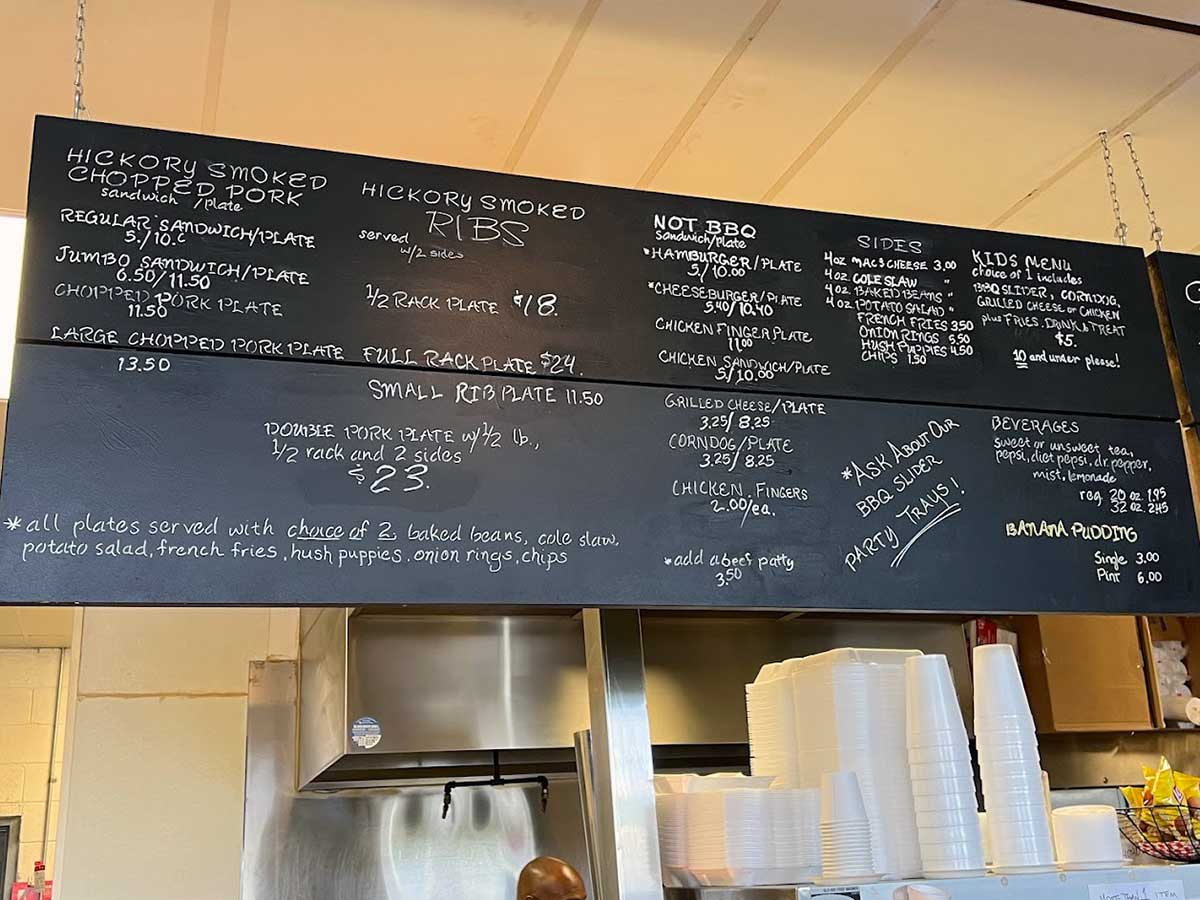 HICKORY SMOKED
CHOPPED PORK
sandwich /plate
REGULAR SANDWICH/PLATE
5./10.
JUMBO SANDWICH/PLATE
6.50/11.50
CHOPPED PORK PLATE
11.50
LARGE CHOPPED PORK PLATE
13.50
HICKORY SMOKED
RIBS
served
w/2 sides
1/2 RACK PLATE $18.
FULL RACK PLATE $24.
SMALL RIB PLATE 11.50
DOUBLE PORK PLATE w/ 1/2 lb.,
1/2 rack and 2 sides
$23.
*all plates served with choice of 2, baked beans, cole slaw,
potato salad, french fries, hush puppies, onion rings, chips
NOT BBQ
sandwich/plate
*HAMBURGER/PLATE
5./10.00
*CHEESEBURGER/PLATE
5.40/10.40
CHICKEN FINGER PLATE
11.00
CHICKEN SANDWICH/PLATE
5/10.00
GRILLED CHEESE/PLATE
3.25/8.25
CORNDOG/PLATE
3.25/8.25
CHICKEN FINGERS
2.00/ea.
*add a beef patty
3.50
SIDES
4oz MAC & CHEESE 3.00
4oz COLE SLAW "
4oz BAKED BEANS "
4oz POTATO SALAD "
FRENCH FRIES 3.50
ONION RINGS 5.50
HUSH PUPPIES 4.50
CHIPS 1.50
*ASK ABOUT OUR
BBQ SLIDER
PARTY TRAYS!
KIDS MENU
choice of 1 includes
BBQ SLIDER, CORNDOG,
GRILLED CHEESE OR CHICKEN
plus FRIES, DRINK & TREAT
$5.
10 and under please!
BEVERAGES
sweet or unsweet tea,
pepsi, diet pepsi, dr. pepper,
mist, lemonade
reg. 20 oz 1.95
32 oz. 2.45
BANANA PUDDING
Single 3.00
Pint 6.00
MORE THAN 1 ITEM